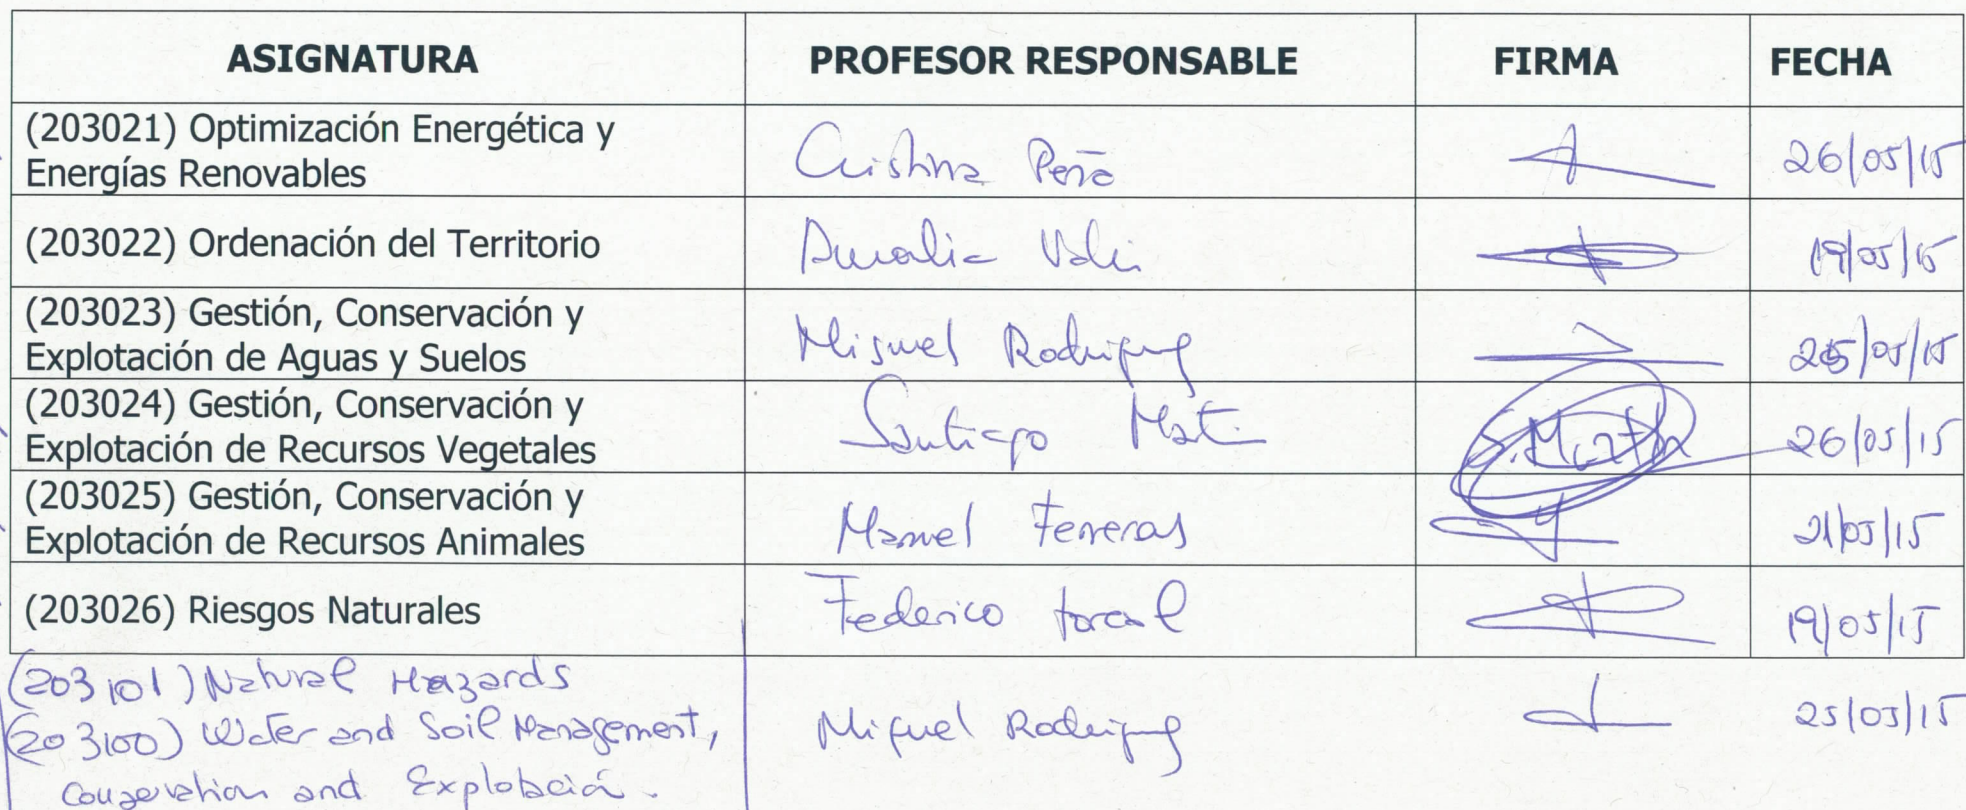 ASIGNATURA PROFESOR RESPONSABLE FIRMA FECHA
(203021) Optimización Energética y
Energías Renovables
Cristina Peña 26/05/15
(203022) Ordenación del Territorio
19/05/15
(203023) Gestión, Conservación y
Explotación de Aguas y Suelos
Miguel Rodriguez 25/05/15
(203024) Gestión, Conservación y
Explotación de Recursos Vegetales
Santiago 26/05/15
(203025) Gestión, Conservación y
Explotación de Recursos Animales
Manuel Ferreras 21/05/15
(203026) Riesgos Naturales
Federico Torcal 19/05/15
(203101) Natural Hazards
(203100) Water and Soil Management,
Conservation and
Miguel Rodriguez 25/05/15